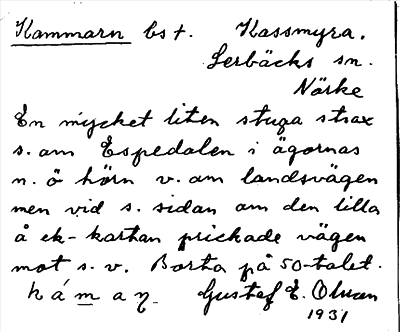 Kammarn bst. Kassmyra.
Lerbäcks sn.
Närke
En mycket liten stuga strax
s. om Espedalen i ägornas
n. ö hörn v. om landsvägen
men vid s. sidan om den lilla
å ek-kartan prickade vägen
mot s. v. Borta på 50-talet.
Gustaf E. Olsson
1931